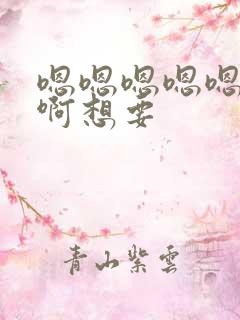 嗯嗯嗯嗯嗯
啊想要
青山紫雲